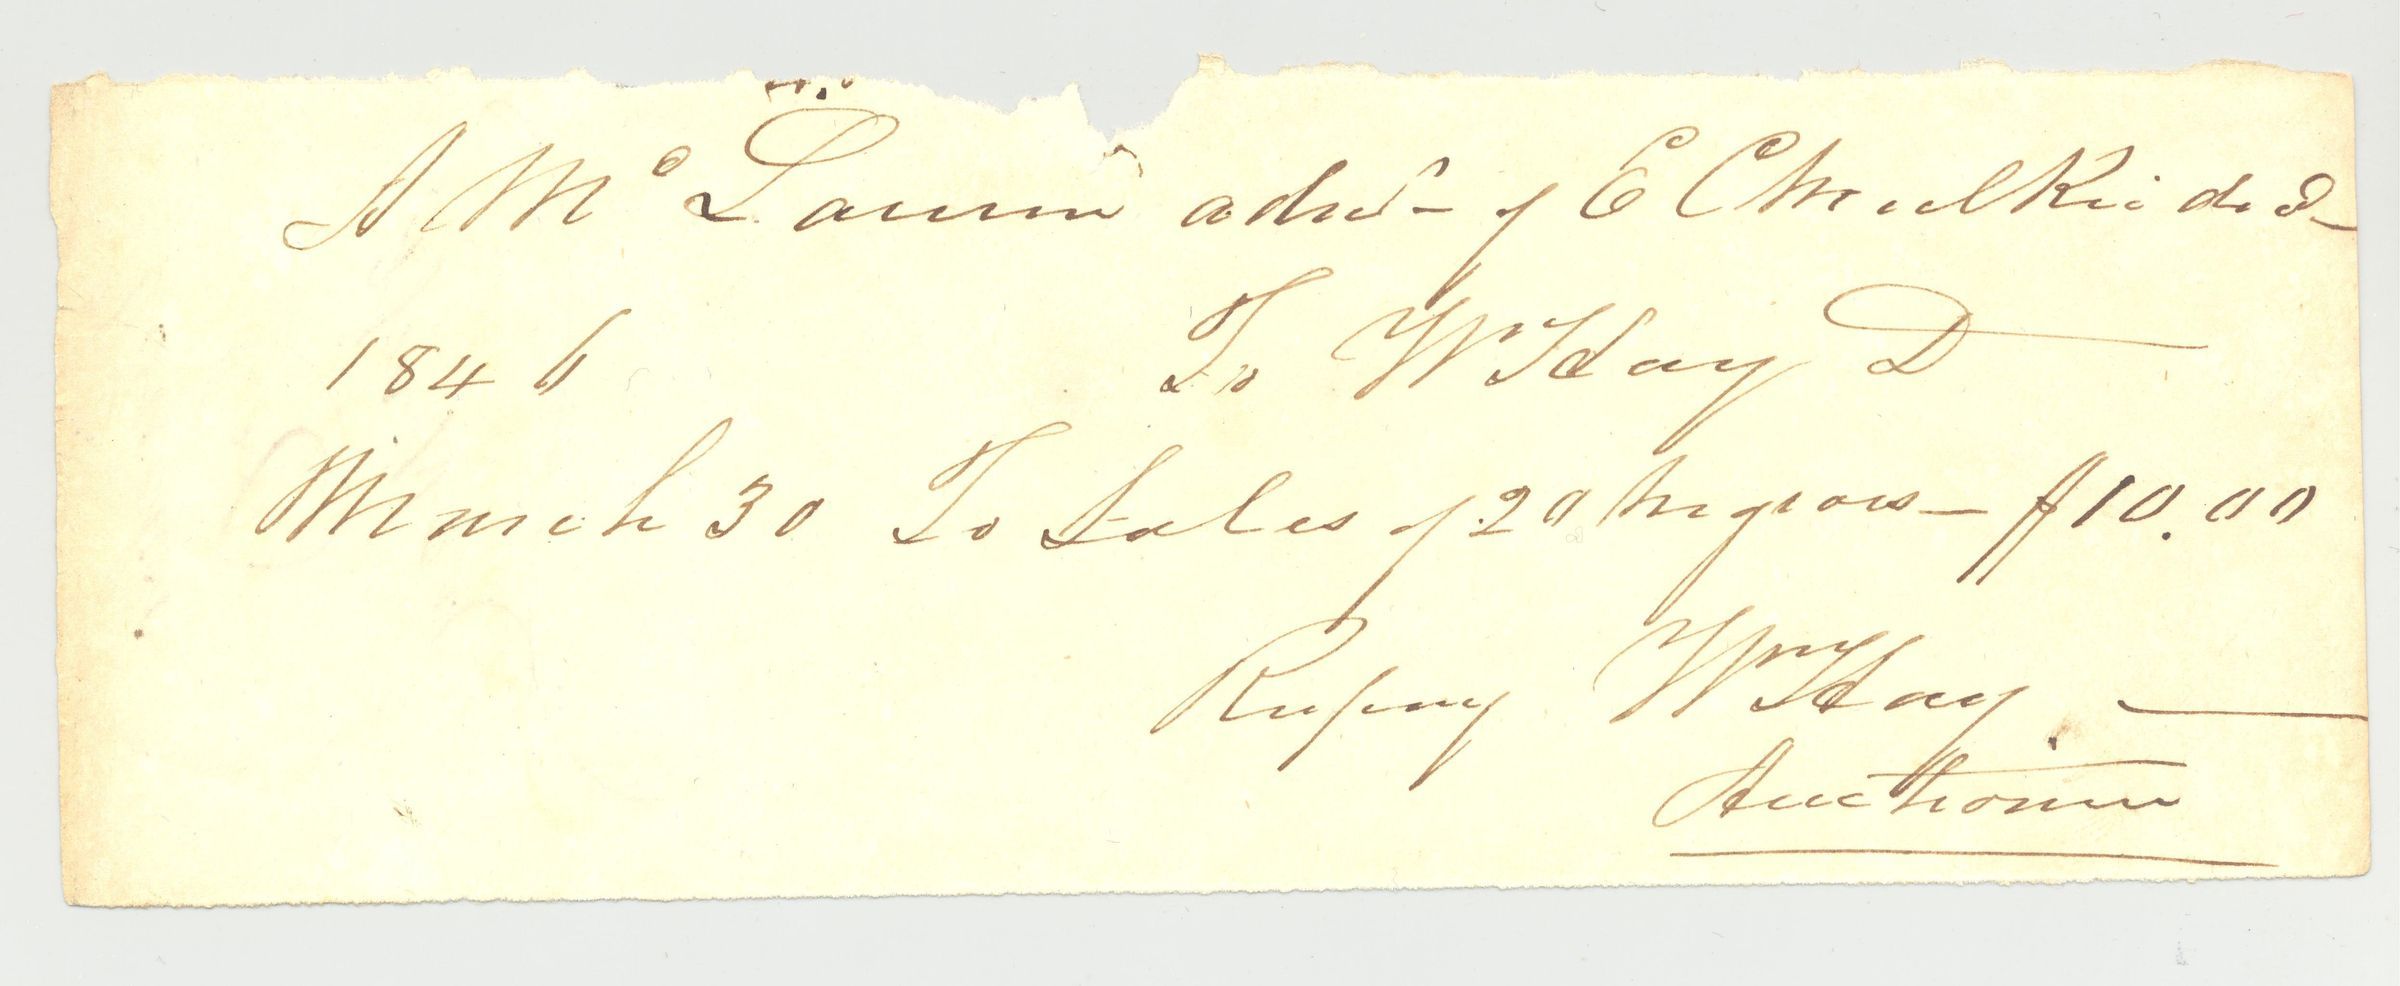 A McLaurin adm- of E C Mulkie decd
1846 To W Hay D
March 30 To Sales of 20 Negroes - $10.00
W Hay
Auctioneer